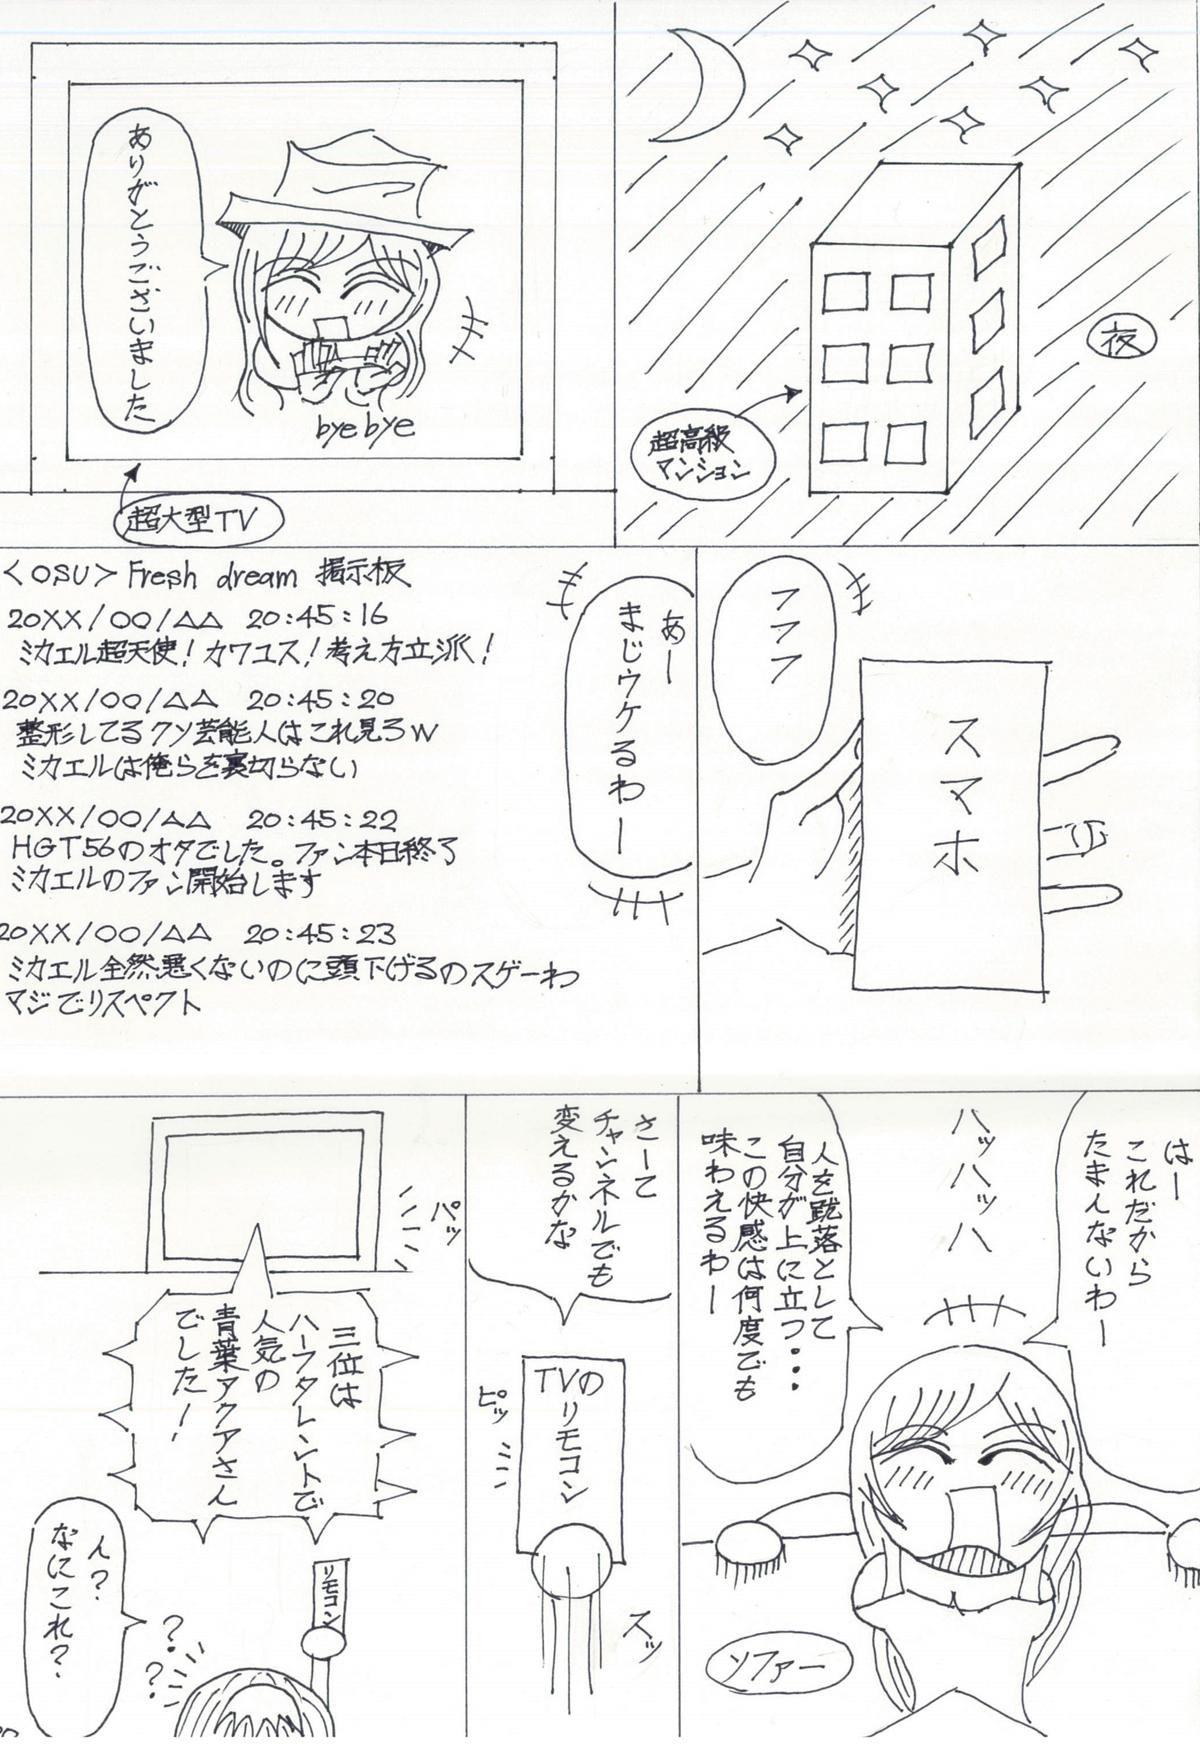 夜
超高級
マンション
ありがとうございました
bye bye
超大型TV
フフフ
スマホ
あー
まじウケるわー
<OSU> Fresh dream 掲示板
20XX/○○/△△ 20:45:16
ミカエル超天使！カワユス！考え方立派！
20XX/○○/△△ 20:45:20
整形してるクソ芸能人はこれ見ろw
ミカエルは俺らを裏切らない
20XX/○○/△△ 20:45:22
HGT56のオタでした。ファン本日終了
ミカエルのファン開始します
20XX/○○/△△ 20:45:23
ミカエル全然悪くないのに頭下げるのスゲーわ
マジでリスペクト
はー
これだから
たまんないわー
ハッハッハ
人を蹴落として
自分が上に立つ・・・
この快感は何度でも
味わえるわー
ソファー
さーて
チャンネルでも
変えるかな
TVの
リモコン
ピッ
スッ
パッ
三位は
ハーフタレントで
人気の
青葉アクアさん
でした！
リモコン
ん？
なにこれ？
？
？